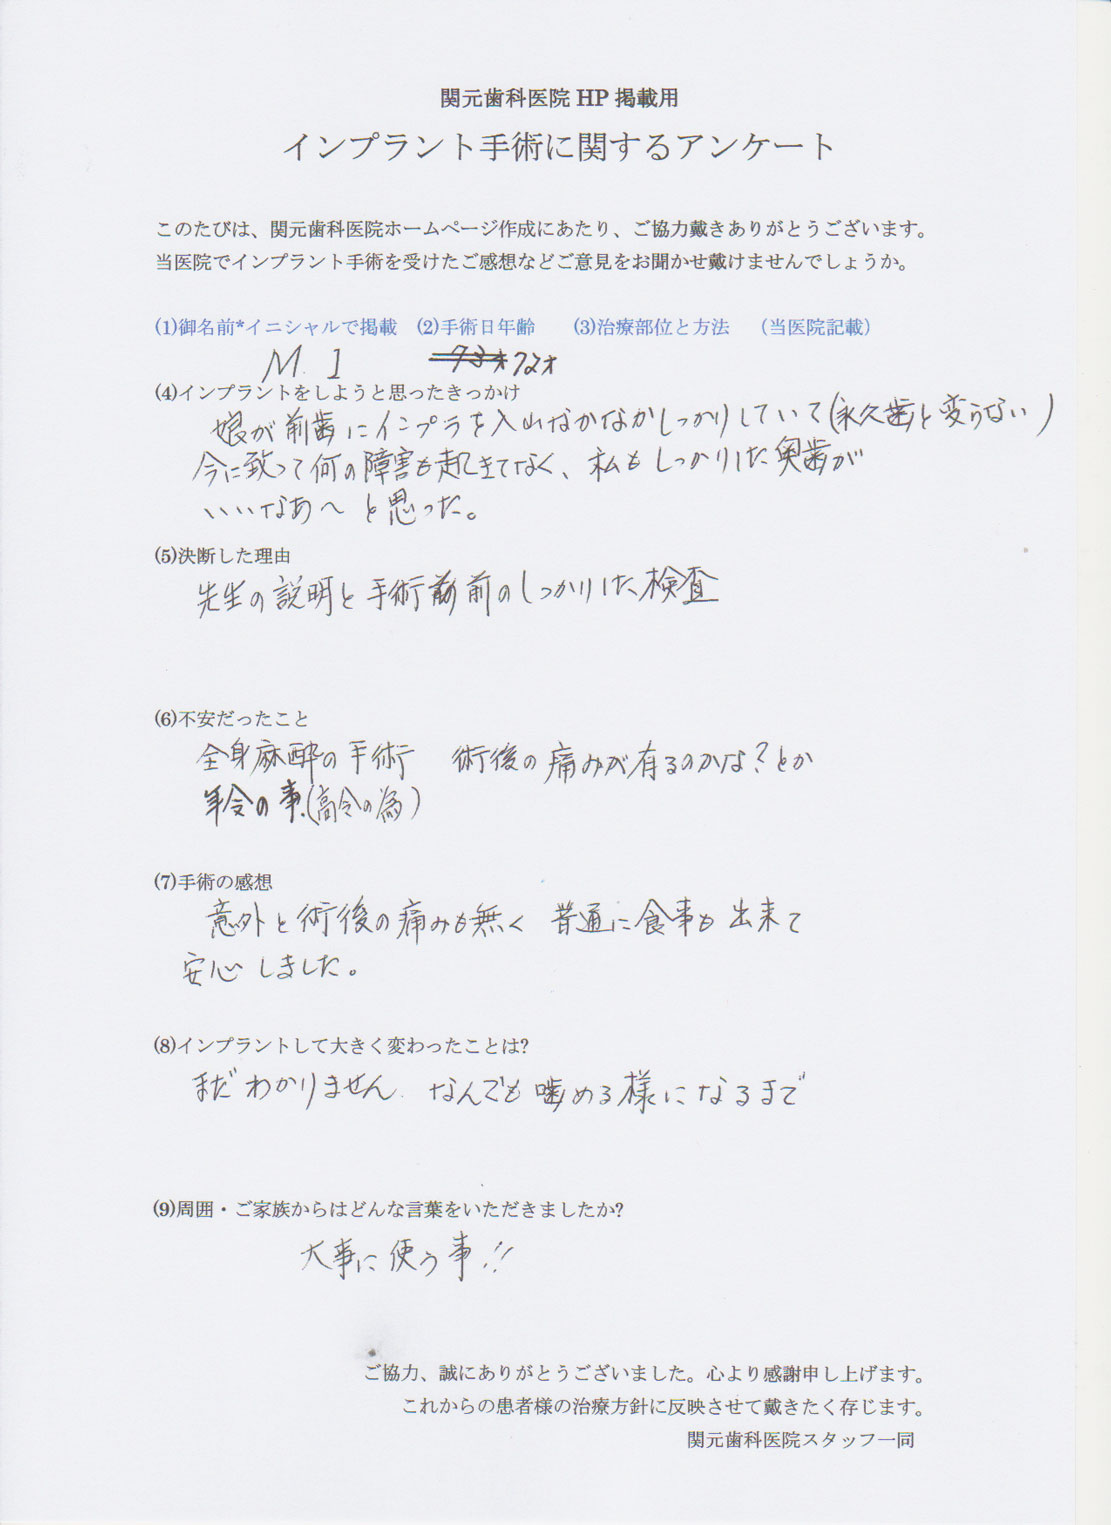 関元歯科医院 HP 掲載用
インプラント手術に関するアンケート
このたびは、関元歯科医院ホームページ作成にあたり、ご協力戴きありがとうございます。
当医院でインプラント手術を受けたご感想などご意見をお聞かせ戴けませんでしょうか。
(1)御名前*イニシャルで掲載 (2)手術日年齢 (3)治療部位と方法 (当医院記載)
M. I 73才 72才
(4)インプラントをしようと思ったきっかけ
娘が前歯にインプラを入れなかなかしっかりしていて(永久歯と変らない)
今に致って何の障害も起きてなく、私もしっかりした奥歯が
いいなあ〜と思った。
(5)決断した理由
先生の説明と手術前のしっかりした検査
(6)不安だったこと
全身麻酔の手術 術後の痛みが有るのかな?とか
年令の事.(高令の為)
(7)手術の感想
意外と術後の痛みも無く 普通に食事も出来て
安心しました。
(8)インプラントして大きく変わったことは?
まだわかりません. なんでも噛める様になるまで
(9)周囲・ご家族からはどんな言葉をいただきましたか?
大事に使う事!!
ご協力、誠にありがとうございました。心より感謝申し上げます。
これからの患者様の治療方針に反映させて戴きたく存じます。
関元歯科医院スタッフ一同